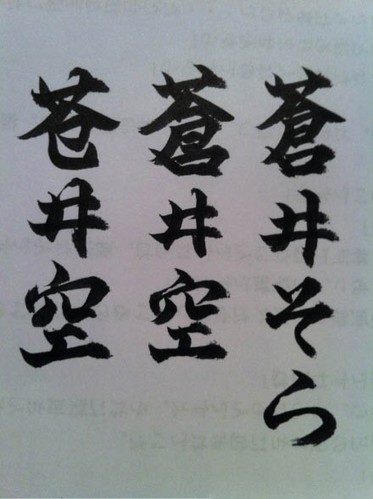 蒼井そら
蒼井空
苍井空